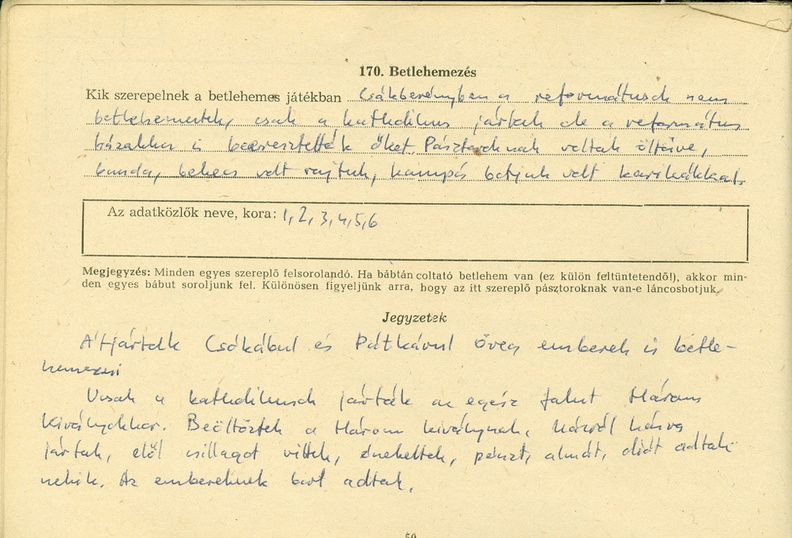 170. Betlehemezés
Kik szerepelnek a betlehemes játékban Csákberényben a reformátusok nem
betlehemeztek, csak a katholikus jártak de a református
házakba is beeresztették őket. Pásztoroknak voltak öltözve,
bunda, bekecs volt rajtuk, kampós botjuk volt karikákkal.
Az adatközlők neve, kora: 1, 2, 3, 4, 5, 6
Megjegyzés: Minden egyes szereplő felsorolandó. Ha bábtáncoltató betlehem van (ez külön feltüntetendő!), akkor min-
den egyes bábut soroljunk fel. Különösen figyeljünk arra, hogy az itt szereplő pásztoroknak van-e láncosbotjuk.
Jegyzetek
Átjártak Csókábul és Pátkávul öveg emberek is betle-
hemezni
Csak a katholikusok járták az egész falut Három
királyokkor. Beöltöztek a Három királynak, házról házra
jártak, elől csillagot vittek, énekeltek, pénzt, almát, diót adtak
nekik. Az embereknek bort adtak.
50